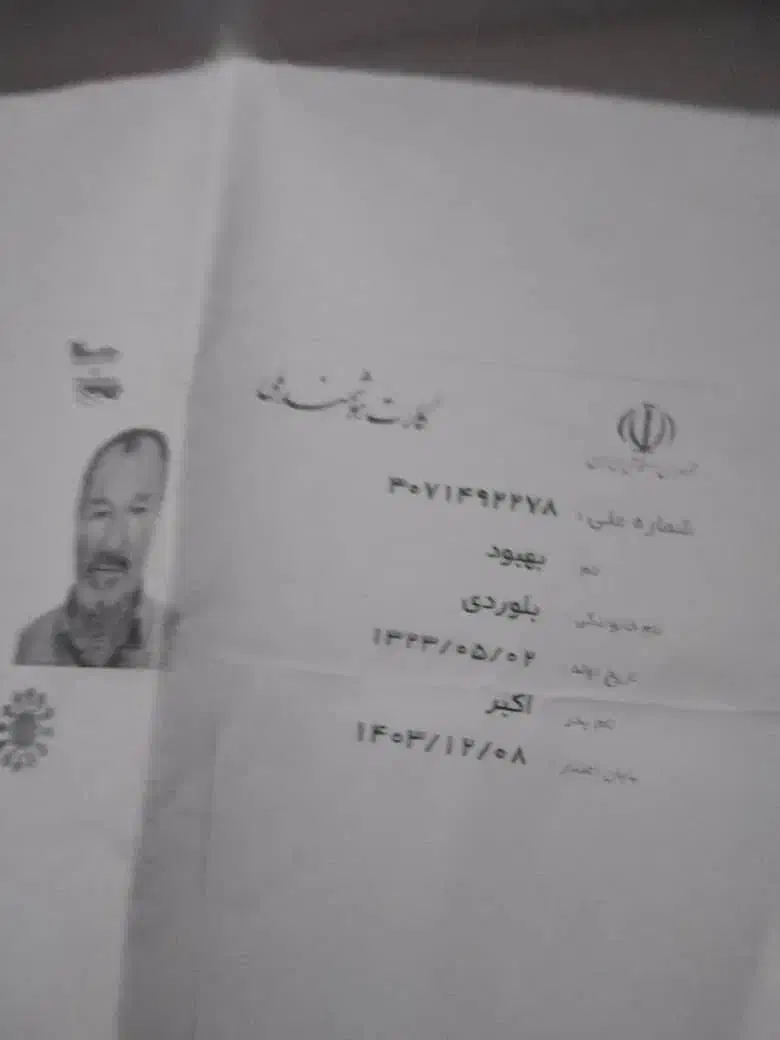 کارت هوشمند ملی
شماره ملی: ۳۰۷۱۴۹۲۲۷۸
نام بهبود
نام خانوادگی بلوردی
تاریخ تولد ۱۳۲۳/۰۵/۰۲
نام پدر اکبر
پایان اعتبار ۱۴۰۳/۱۲/۰۸